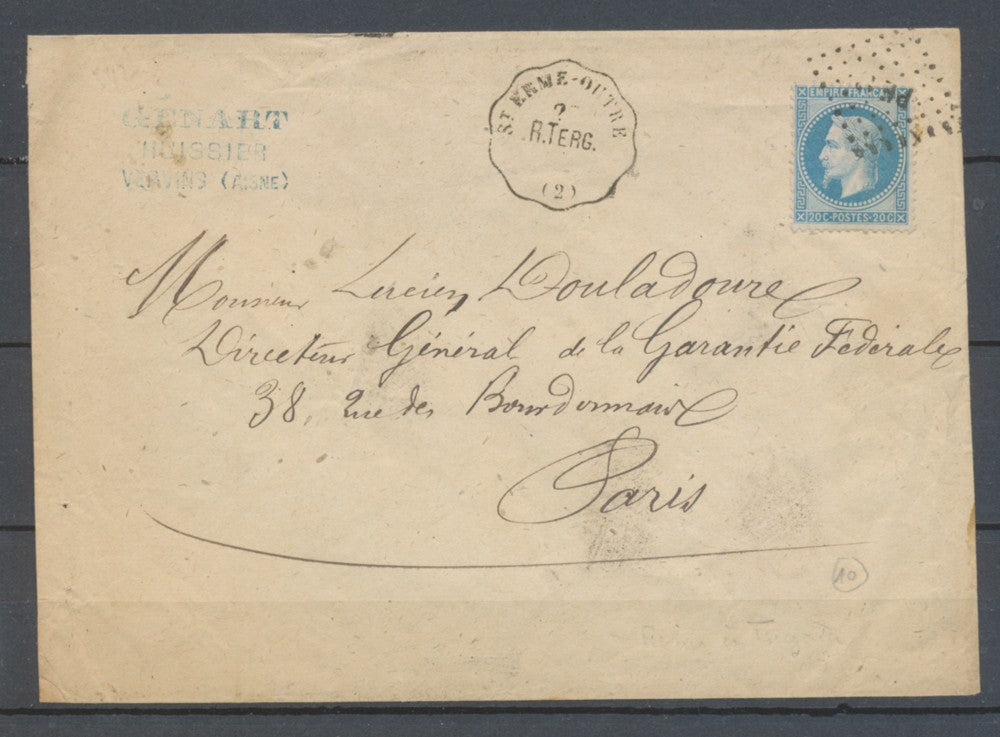 GÉNART
HUISSIER
VERVINS (AISNE)
ST ERME-OUTRE
2
R.TERG.
(2)
EMPIRE FRANÇAIS
20C-POSTES-20C
Monsieur Lucien Douladoure
Directeur Général de la Garantie Fédérale
38, Rue des Bourdonnais
Paris
10